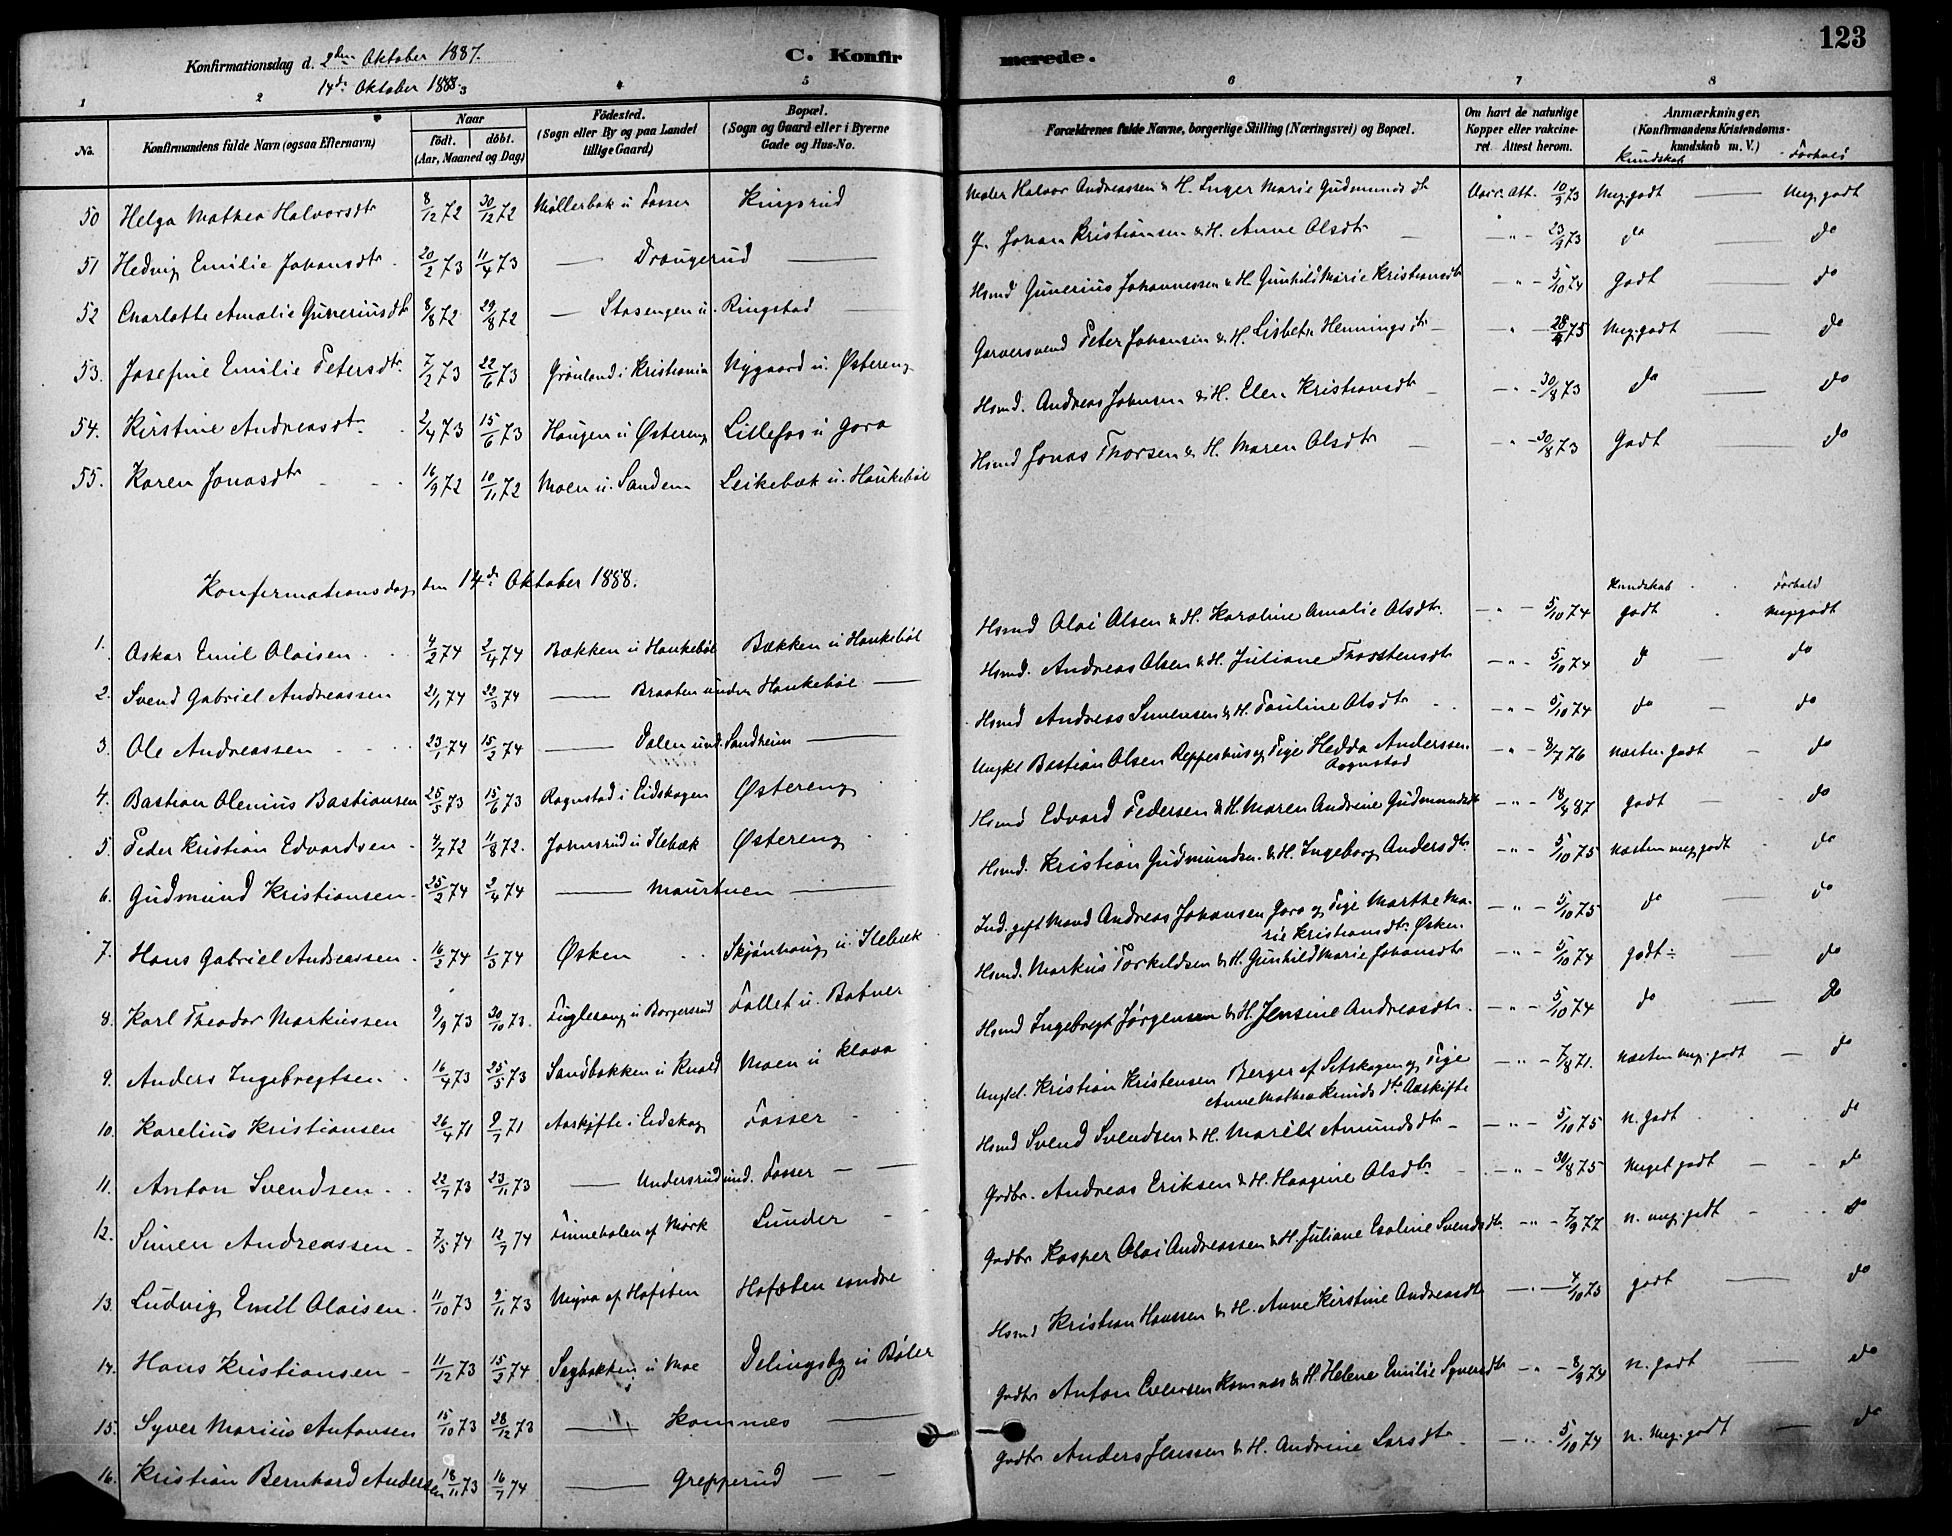 123
Konfirmationsdag d. 2den Oktober 1887.
14de Oktober 1888.
C. Konfirmerede.
1 2 3 4 5 6 7 8
No. Konfirmandens fulde Navn (ogsaa Efternavn) Naar født. døbt. (Aar, Maaned og Dag) Fødested. (Sogn eller By og paa Landet tillige Gaard) Bopæl. (Sogn og Gaard eller i Byerne Gade og Hus-No. Forældrenes fulde Navne, borgerlige Stilling (Næringsvei) og Bopæl. Om havt de naturlige Kopper eller vakcineret. Attest herom. Anmærkninger. (Konfirmandens Kristendomskundskab m. V.) Kundskab Forhold
50 Helga Mathea Halvorsdtr 8/12 72 30/12 72 Møllerbak u Fosser Kingsrud Maler Halvor Andreassen & H. Inger Marie Gudmundsdt Vacc. Att. 10/9 73 Meg. godt — Meg. godt
51 Hedvig Emilie Johansdtr. 20/2 73 11/4 73 — Draugerud — Johan Kristiansen & H. Anne Olsdtr — " — 23/9 73 do do
52 Charlotte Amalie Guneriusdt 8/8 72 29/8 72 — Stasengen u. Ringstad — Hsmd Gunerius Johannessen & H. Gunhild Marie Kristiansdtr — " — 5/10 74 godt — do
53. Josefine Emilie Petersdtr. 7/2 73 22/6 73 Grønland i Kristiania Nygaard u. Østereng Garversvend Peter Johansen & H. Lisbeth Henningsdtr — " — 28/9 75 Meg. godt — do
54. Kirstine Andreasdt. 2/4 73 15/6 73 Haugen u Østereng Lillefos u Gora Hsmd. Andreas Johnsen & H. Elen Kristiansdtr — " — 30/8 73 do — do
55. Karen Jonasdtr 16/9 72 10/11 72 Moen u. Sandem Leikebæk u. Haukebøl Hsmd Jonas Thorsen & H. Maren Olsdtr — " — 30/8 73 Godt — do
Konfirmationsdag den 14de Oktober 1888. Kundskab Forhold
1. Oskar Emil Olaisen 4/2 74 2/4 74 Bækken u Haukebøl Bækken u Haukebøl Hsmd Olai Olsen & H. Karoline Amalie Olsdtr. — " — 5/10 74 godt Meg. godt
2. Svend Gabriel Andreassen 21/1 74 22/3 74 — Braaten under Haukebøl — Hsmd. Andreas Olsen & H. Juliane Thorstensdt — " — 5/10 74 do — do
3. Ole Andreassen 23/1 74 15/2 74 — Dalen und. Sandheim — Hsmd Andreas Simensen & H. Pauline Olsdtr — " — 5/10 74 do — do
4. Bastian Olenius Bastiansen 25/5 73 15/6 73 Rognstad i Eidskogen Østereng Ungkl Bastian Olsen Reppeshus og Pige Hedda Anderssen Rognstad — " — 8/7 76 næsten godt — do
5. Peder Kristian Edvardsen 4/7 72 11/8 72. Johnsrud u Ilebæk Østereng Hsmd Edvard Pedersen & H. Maren Andrine Gudmundsdt — " — 18/4 87 godt — do
6. Gudmund Kristiansen 25/2 74 2/4 74 — Maurtuen — Hsmd. Kristian Gudmundsen & H. Ingeborg Andersdtr. — " — 5/10 75 næsten meg. godt do
7. Hans Gabriel Andreassen 16/2 74 1/3 74 Øsken Skjønhaug u. Ilebæk Ind. gift Mand Andreas Johansen Gara og Pige Marthe Marie Kristiansdtr. Øsken. — " — 5/10 75 do do
8. Karl Theodor Markussen 9/9 73 30/10 73. Fuglesang u Borgersrud Fallet u. Botner Hsmd. Markus Torkeldsen & H. Gunhild Marie Johansdtr — " — 5/10 74 godt ÷ do
9. Anders Ingebregtsen 16/4 73 25/5 73 Sandbakken u Knold Moen u Klava Hsmd Ingebregt Jørgensen & H. Jensine Andreasdtr. — " — 5/10 74 do — do
10. Karelius Kristiansen 26/4 71 9/7 71 Aarkifte i Eidskog Fosser Ungkl. Kristian Kristensen Berger af Setskogen og Pige Anne Mathea Knudsdtr Aarkifte — " — 7/8 71. næsten meg. godt — do
11. Anton Svendsen 22/7 73 23/11 73 — Undersrud und. Fosser — Hsmd Svend Svendsen & H. Marit Amundsdtr — " — 5/10 75 n. godt do
12. Simen Andreassen 7/5 74 12/7 74 Finneholen af Mørk Lunder Gdbr. Andreas Eriksen & H. Haagine Olsdtr. — " — 30/8 75 Meget godt — do
13. Ludvig Emil Olaisen. 11/10 73 9/11 73 Myra af Hofsten Hofsten søndre Gdbr Kasper Olai Andreassen & H. Juliane Eseline Svendsdtr. — " — 7/9 77 n. meg. godt do
14. Hans Kristiansen 11/12 73 15/3 74 Sagbakken u Moe Delingsby u Bøler Hsmd Kristian Hanssen & H. Anne Kirstine Andreasdtr — " — 4/10 75 godt — do
15. Syver Marius Antonsen 15/10 73 28/12 73 — Komnæs — Gdbr Anton Evensen Komnæs & H. Helene Emilie Syversdtr — " — 8/9 74 n. godt — do
16. Kristian Bernhard Andersen 18/11 73 16/7 74 — Grepperud — Gdbr Anders Jenssen & H. Andrine Larsdtr — " — 5/10 74 n. Meg. godt — do